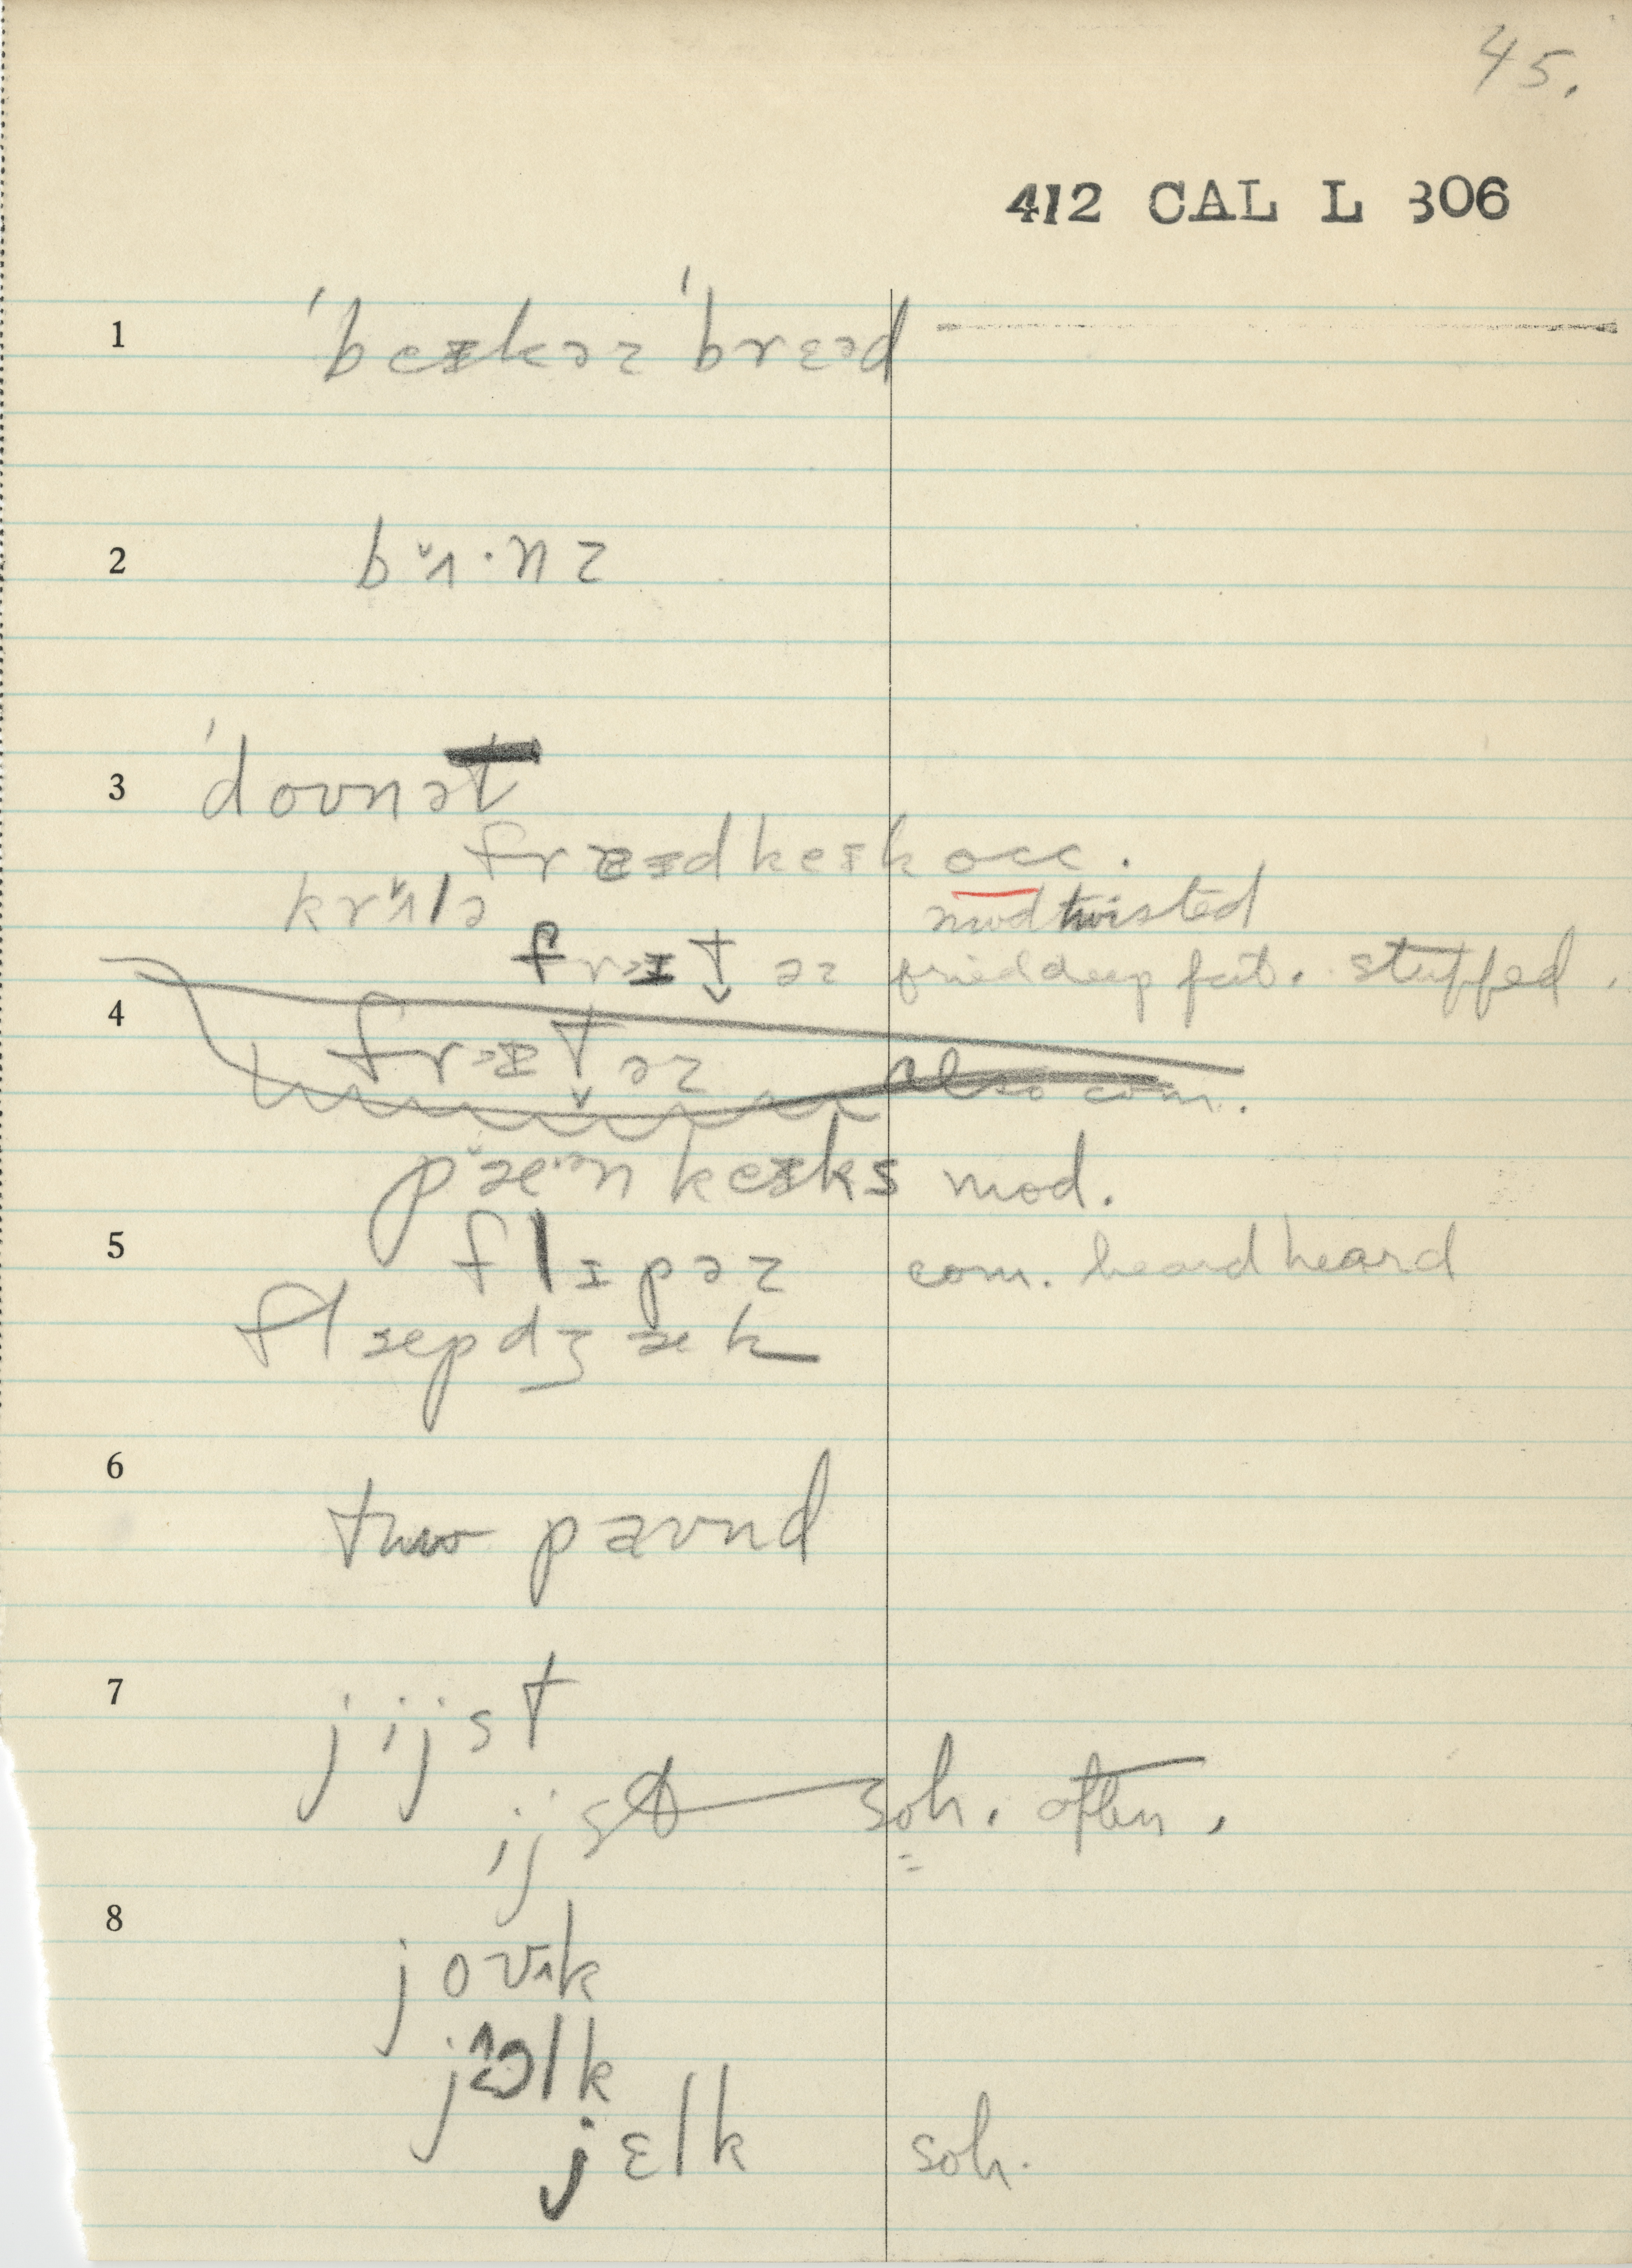 45.
412 CAL L 306
1 ˈbeɪkəz ˈbrɛəd
2 bʌ̌·nz
3 ˈdoʊnət
fraɪd keɪk occ.
krʌ̌lə mod twisted
frɪtəz fried deep fat. stuffed.
4 frɪtəz also com.
pæ̌ᵊn keɪks mod.
5 flɪpəz com. heard heard
flæpdʒæk
6 tuw paʊnd
7 jijst
ijst soh. often.
8 joʊk
jɔlk
jɛlk soh.